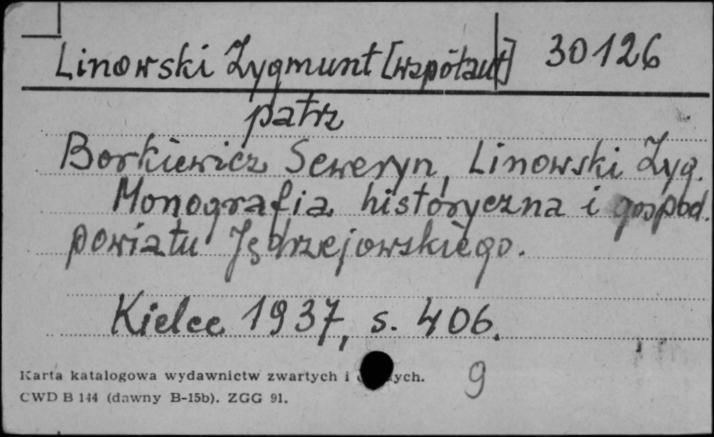 Linowski Zygmunt [współaut] 30126
patrz
Borkiewicz Seweryn, Linowski Zyg.
Monografia historyczna i gospod.
powiatu Jędrzejowskiego.
Kielce 1937, s. 406.
Karta katalogowa wydawnictw zwartych i
9
CWD B 144 (dawny B-15b). ZGG 91.